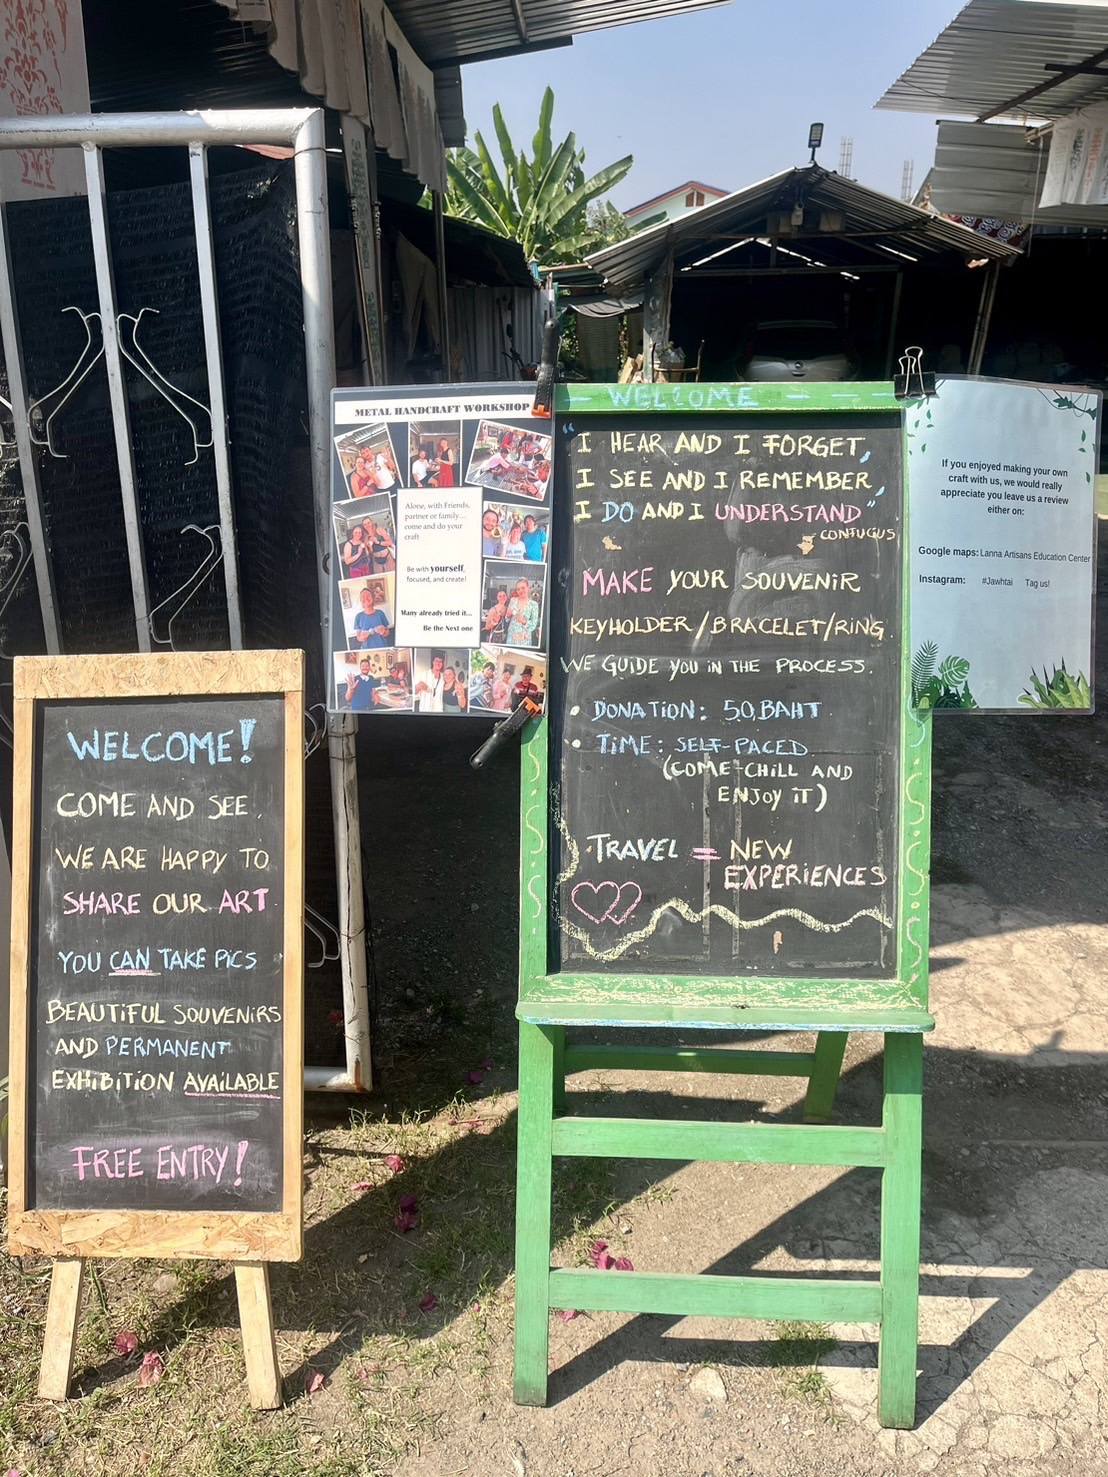 WELCOME!
COME AND SEE.
WE ARE HAPPY TO
SHARE OUR ART
YOU CAN TAKE PICS
BEAUTIFUL SOUVENIRS
AND PERMANENT
EXHIBITION AVAILABLE
FREE ENTRY!
METAL HANDCRAFT WORKSHOP
Alone, with Friends,
partner or family...
come and do your
craft
Be with yourself,
focused, and create!
Many already tried it...
Be the Next one
- WELCOME - -
"I HEAR AND I FORGET,
I SEE AND I REMEMBER,
I DO AND I UNDERSTAND"
CONFUGUS
MAKE YOUR SOUVENIR
KEYHOLDER/BRACELET/RING
WE GUIDE YOU IN THE PROCESS.
• DONATION: 50,BAHT
• TIME: SELF-PACED
(COME-CHILL AND
ENJOY IT)
TRAVEL = NEW
EXPERIENCES
If you enjoyed making your own
craft with us, we would really
appreciate you leave us a review
either on:
Google maps: Lanna Artisans Education Center
Instagram: #Jawhtai Tag us!